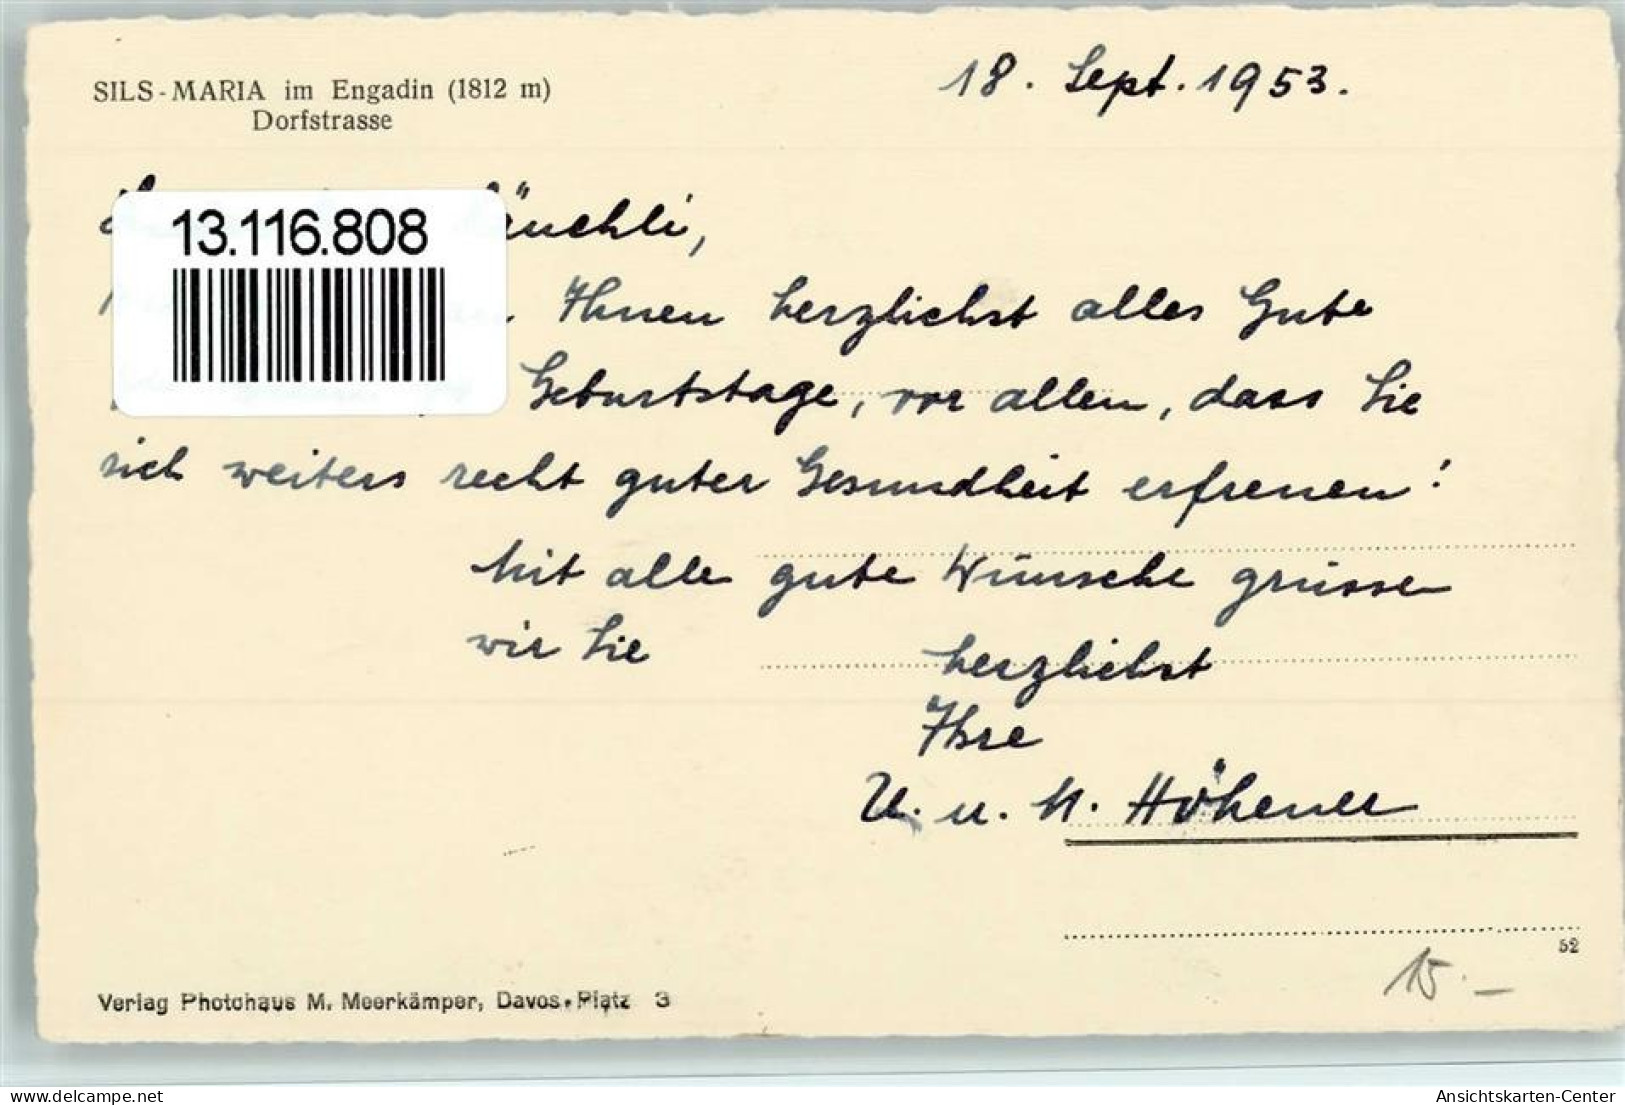 SILS-MARIA im Engadin (1812 m)
Dorfstrasse
18. Sept. 1953.
13.116.808
Ihnen herzlichst alles Gute
Geburtstage, vor allem, dass Sie
sich weiters recht guter Gesundheit erfreuen!
Mit alle gute Wünsche grüssen
wir Sie herzlichst
Ihre
U. u. M. Höhener
52
15.-
Verlag Photohaus M. Meerkämper, Davos-Platz 3
delcampe.net
Ansichtskarten-Center